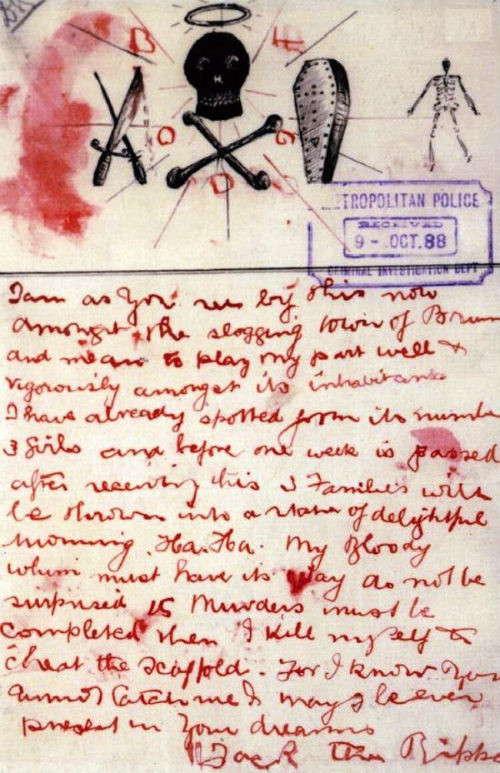 METROPOLITAN POLICE
RECEIVED
9 - OCT. 88
CRIMINAL INVESTIGATION DEPT
I am as you see by this now
amongst the slogging town of Brum
and mean to play my part well &
vigorously amongst its inhabitants
I have already spotted from its number
3 girls and before one week is passed
after receiving this 3 Families will
be thrown into a state of delightful
mourning. Ha. Ha. My Bloody
whim must have its way do not be
surprised 15 Murders must be
completed then I kill myself to
cheat the scaffold. For I know you
cannot catch me & may I be ever
present in your dreams
Jack the Ripper